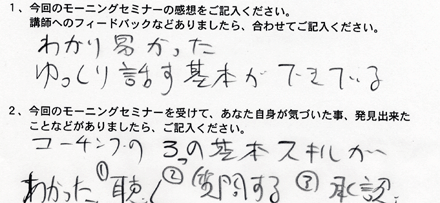 1、今回のモーニングセミナーの感想をご記入ください。
講師へのフィードバックなどありましたら、合わせてご記入ください。
わかり易かった
ゆっくり話す基本ができている
2、今回のモーニングセミナーを受けて、あなた自身が気づいた事、発見出来た
ことなどがありましたら、ご記入ください。
コーチングの3つの基本スキルが
わかった。①聴く②質問する③承認